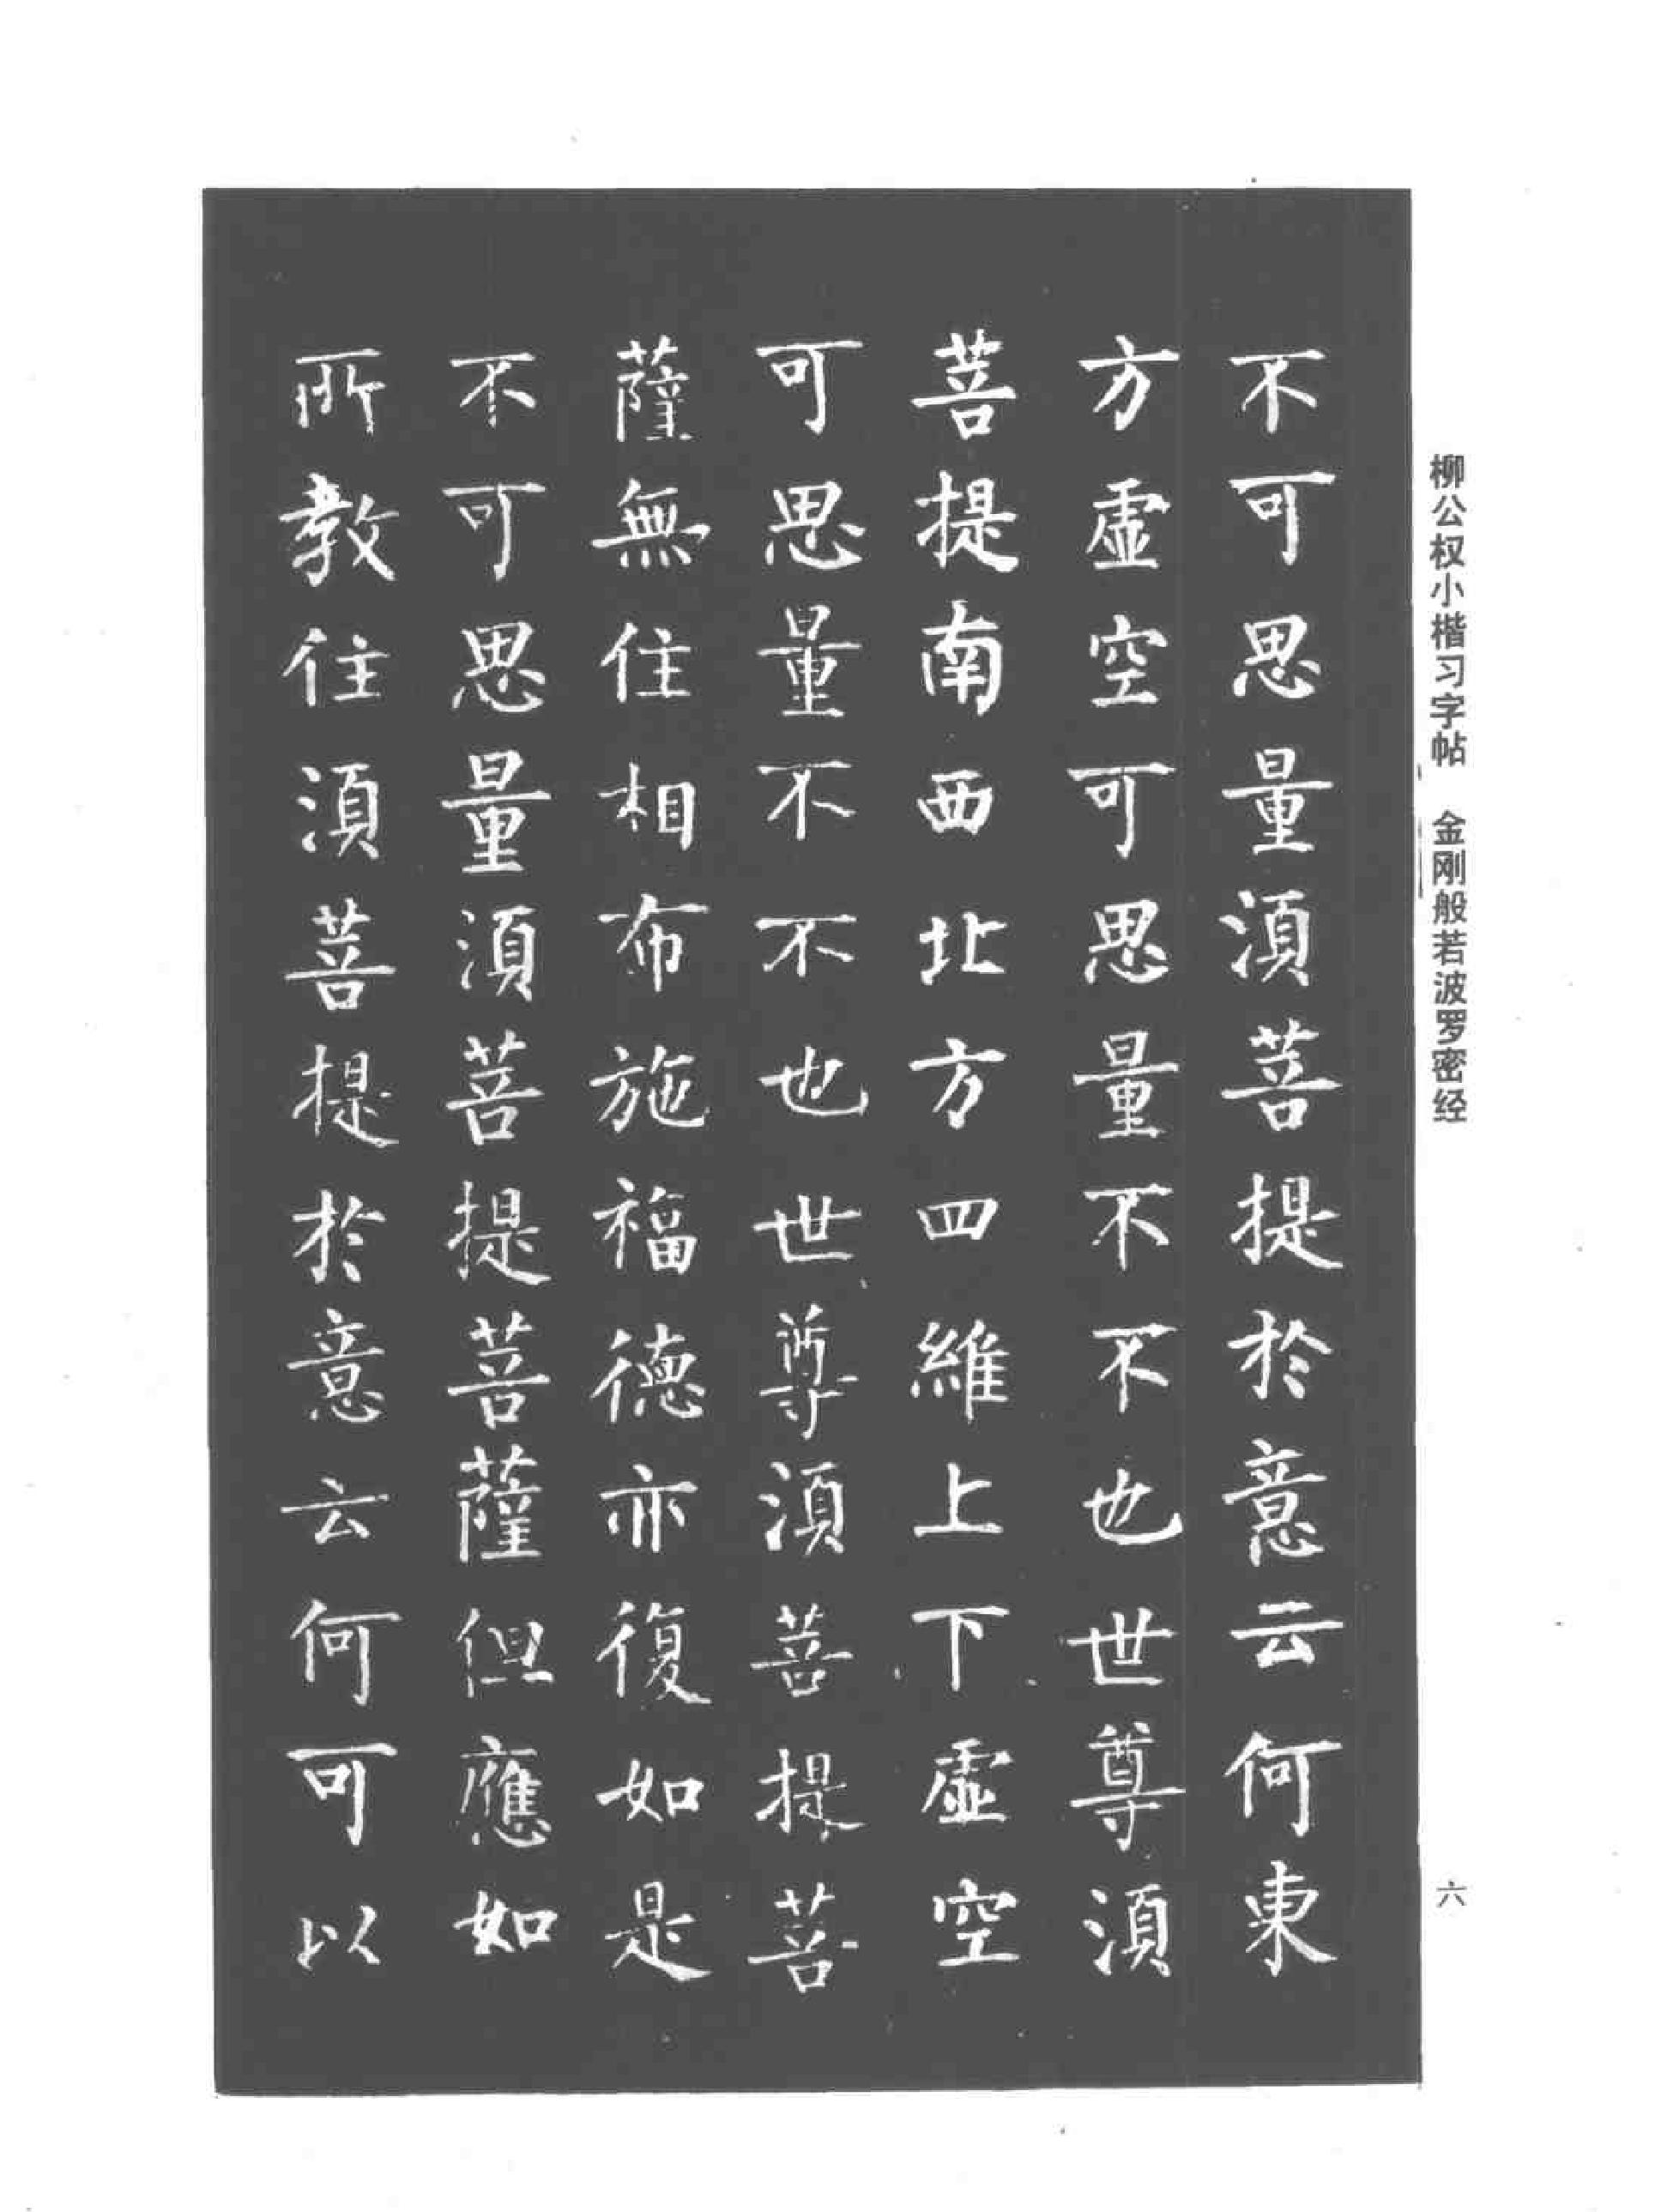 柳公权小楷习字帖　金刚般若波罗密经
六
不可思量須菩提於意云何東
方虛空可思量不不也世尊須
菩提南西北方四維上下虛空
可思量不不也世尊須菩提菩
薩無住相布施福德亦復如是
不可思量須菩提菩薩但應如
所教住須菩提於意云何可以